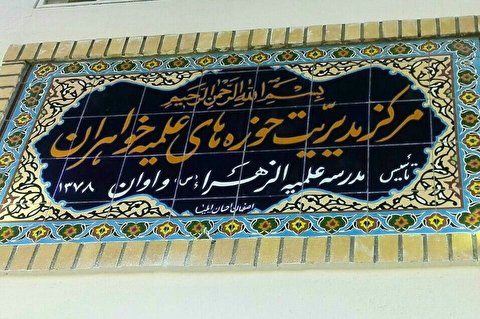 بسم الله الرحمن الرحیم
مرکز مدیریت حوزه های علمیه خواهران
تأسیس مدرسه علمیه الزهرا (س) واوان ۱۳۷۸
اصفهان